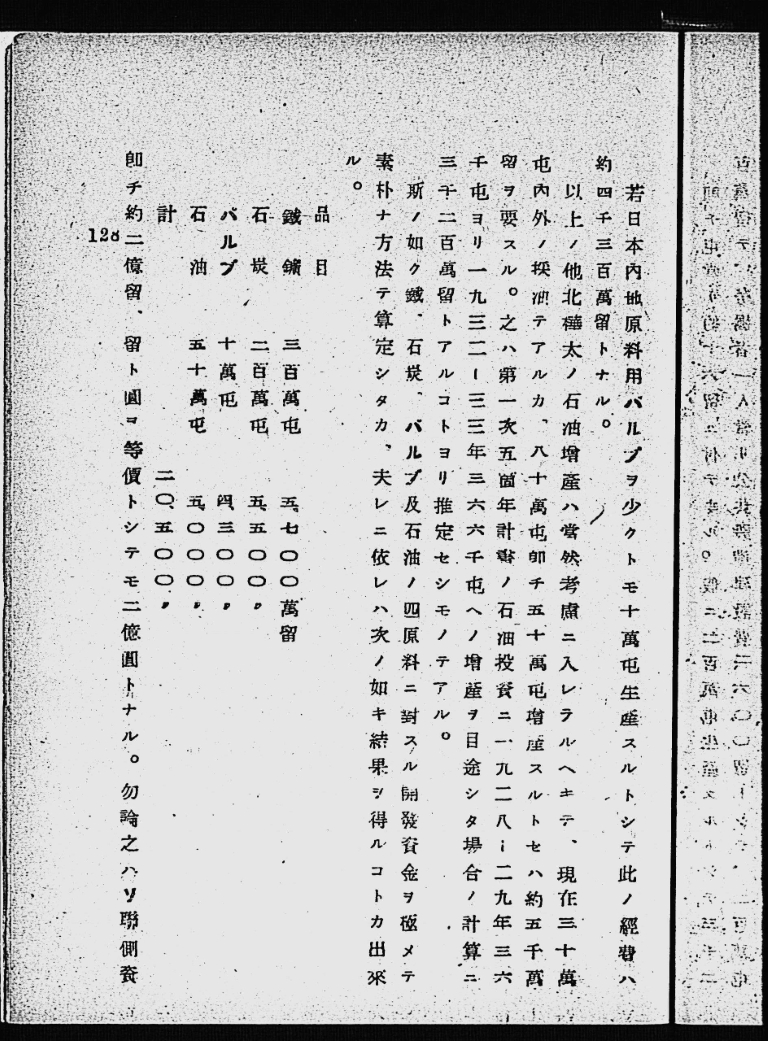 若日本內地原料用パルプヲ少クトモ十萬屯生產スルトシテ此ノ經費ハ
約四千三百萬留トナル。
以上ノ他北樺太ノ石油增產ハ當然考慮ニ入レラルヘキテ、現在三十萬
屯內外ノ採油テアルカ、八十萬屯卽チ五十萬屯增產スルトセハ約五千萬
留ヲ要スル。之ハ第一次五箇年計畫ノ石油投資ニ一九二八—二九年三六
千屯ヨリ一九三二—三三年三六六千屯ヘノ增產ヲ目途シタ場合ノ計算ニ
三千二百萬留トアルコトヨリ推定セシモノテアル。
斯ノ如ク鐵、石炭、パルプ及石油ノ四原料ニ對スル開發資金ヲ極メテ
素朴ナ方法テ算定シタカ、夫レニ依レハ次ノ如キ結果ヲ得ルコトカ出來
ル。
品目
鐵鑛 三百萬屯 五、七〇〇萬留
石炭 二百萬屯 五、五〇〇〃
パルプ 十萬屯 四、三〇〇〃
石油 五十萬屯 五、〇〇〇〃
計 二〇、五〇〇〃
卽チ約二億留、留ト圓ヲ等價トシテモ二億圓トナル。勿論之ハソ聯側資
128